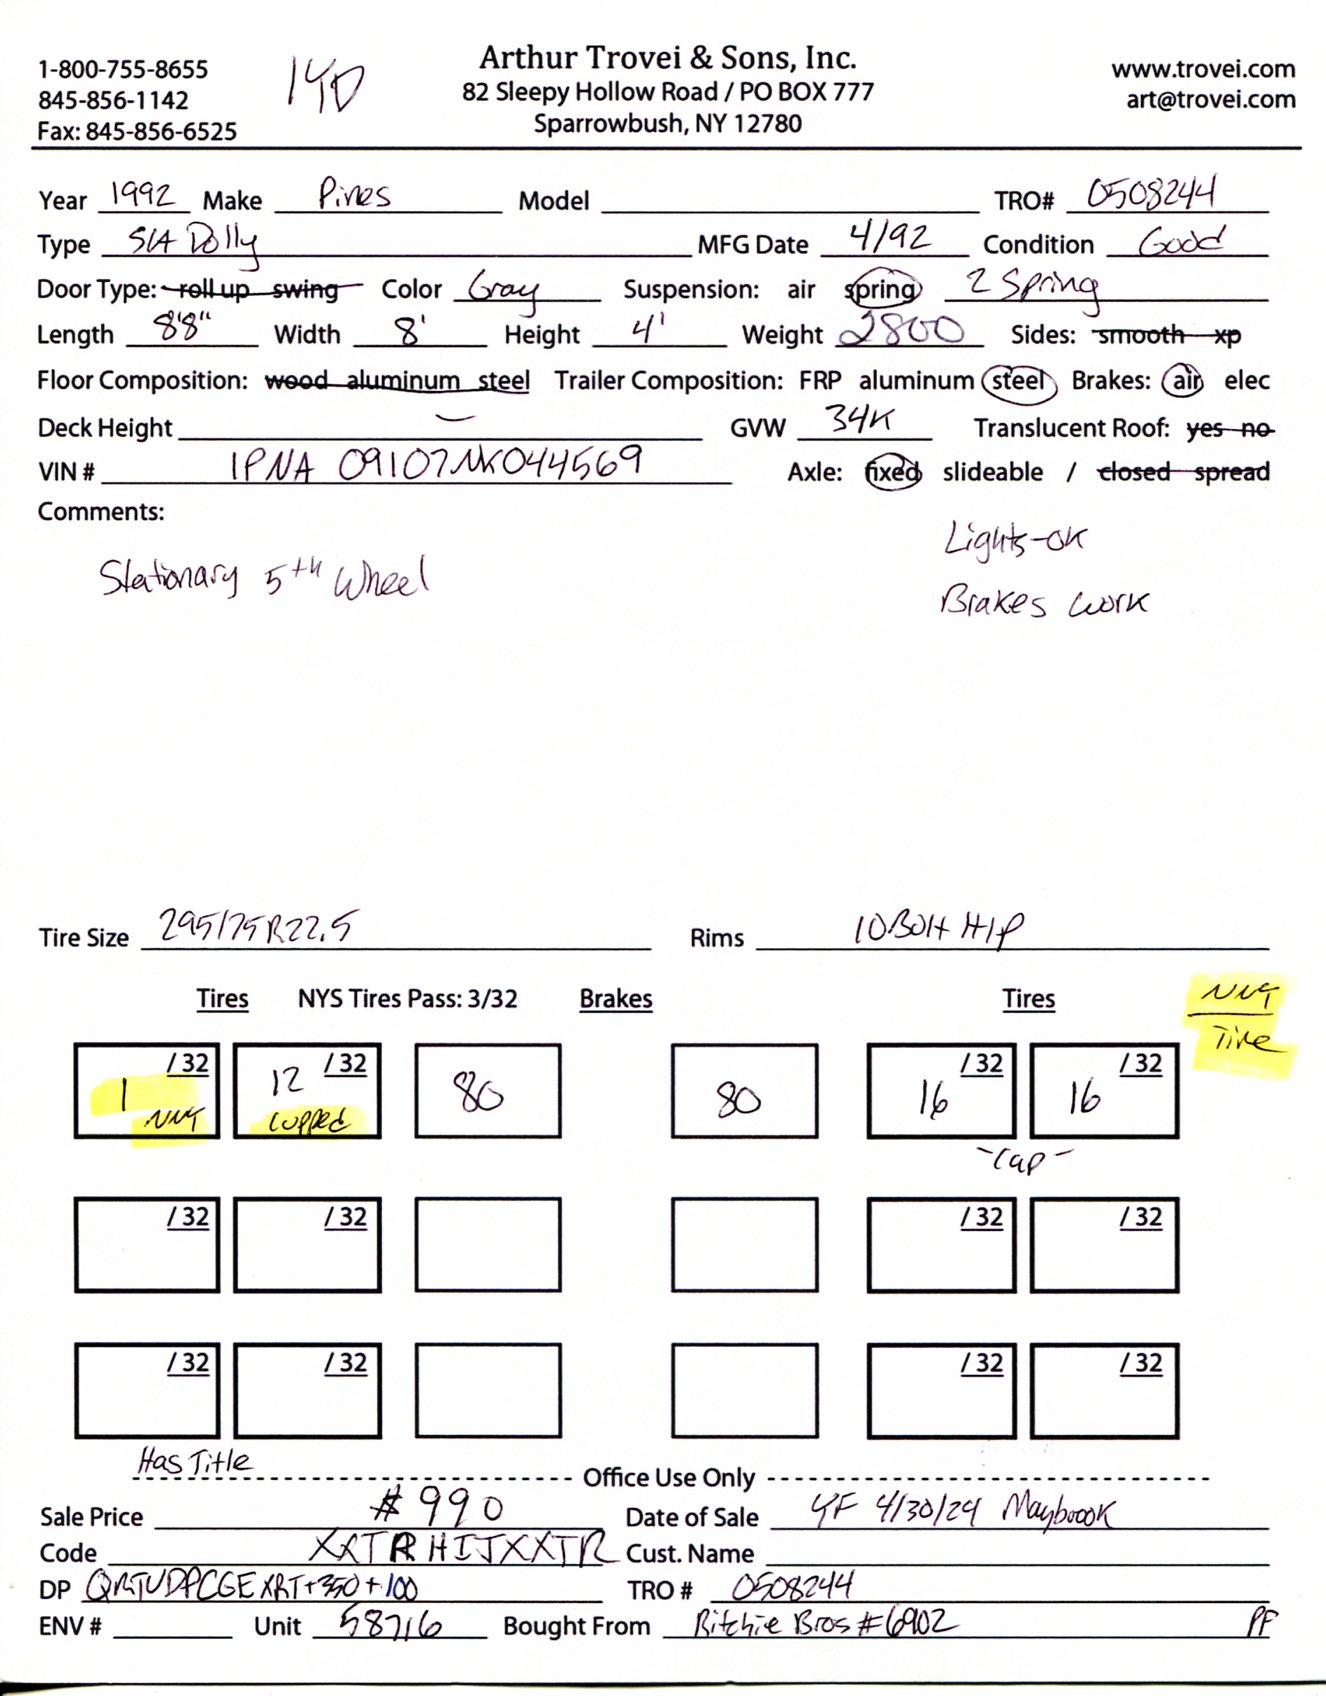 1-800-755-8655
845-856-1142
Fax: 845-856-6525
Arthur Trovei & Sons, Inc.
82 Sleepy Hollow Road / PO BOX 777
Sparrowbush, NY 12780
www.trovei.com
art@trovei.com
Year 1992 Make Pines Model TRO# 0508244
Type S/A Dolly MFG Date 4/92 Condition Good
Door Type: roll up swing Color Gray Suspension: air spring 2 Spring
Length 8'8" Width 8' Height 4' Weight 2800 Sides: smooth xp
Floor Composition: wood aluminum steel Trailer Composition: FRP aluminum steel Brakes: air elec
Deck Height — GVW 34K Translucent Roof: yes no
VIN # 1PNA 09107NK044569 Axle: fixed slideable / closed spread
Comments:
Lights-OK
Stationary 5th Wheel
Brakes work
Tire Size 295/75R22.5 Rims 10 Bolt H/P
Tires NYS Tires Pass: 3/32 Brakes Tires
Tire
1 /32 12 /32 80 80 16 /32 16 /32
Cupped
-Cap-
/32 /32 /32 /32
/32 /32 /32 /32
Has Title
Office Use Only
Sale Price #990 Date of Sale YF 4/30/24 Maybrook
Code XXTRHIJXXTR Cust. Name
DP +350+100 TRO # 0508244
ENV # Unit 58716 Bought From Ritchie Bros #6902 PF